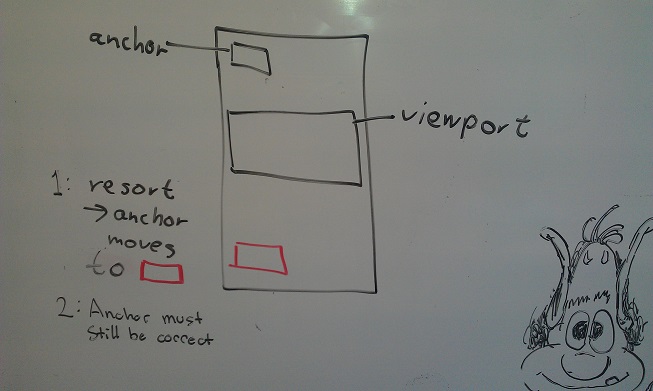 anchor
viewport
1: resort
→ anchor
moves
to
2: Anchor must
still be correct